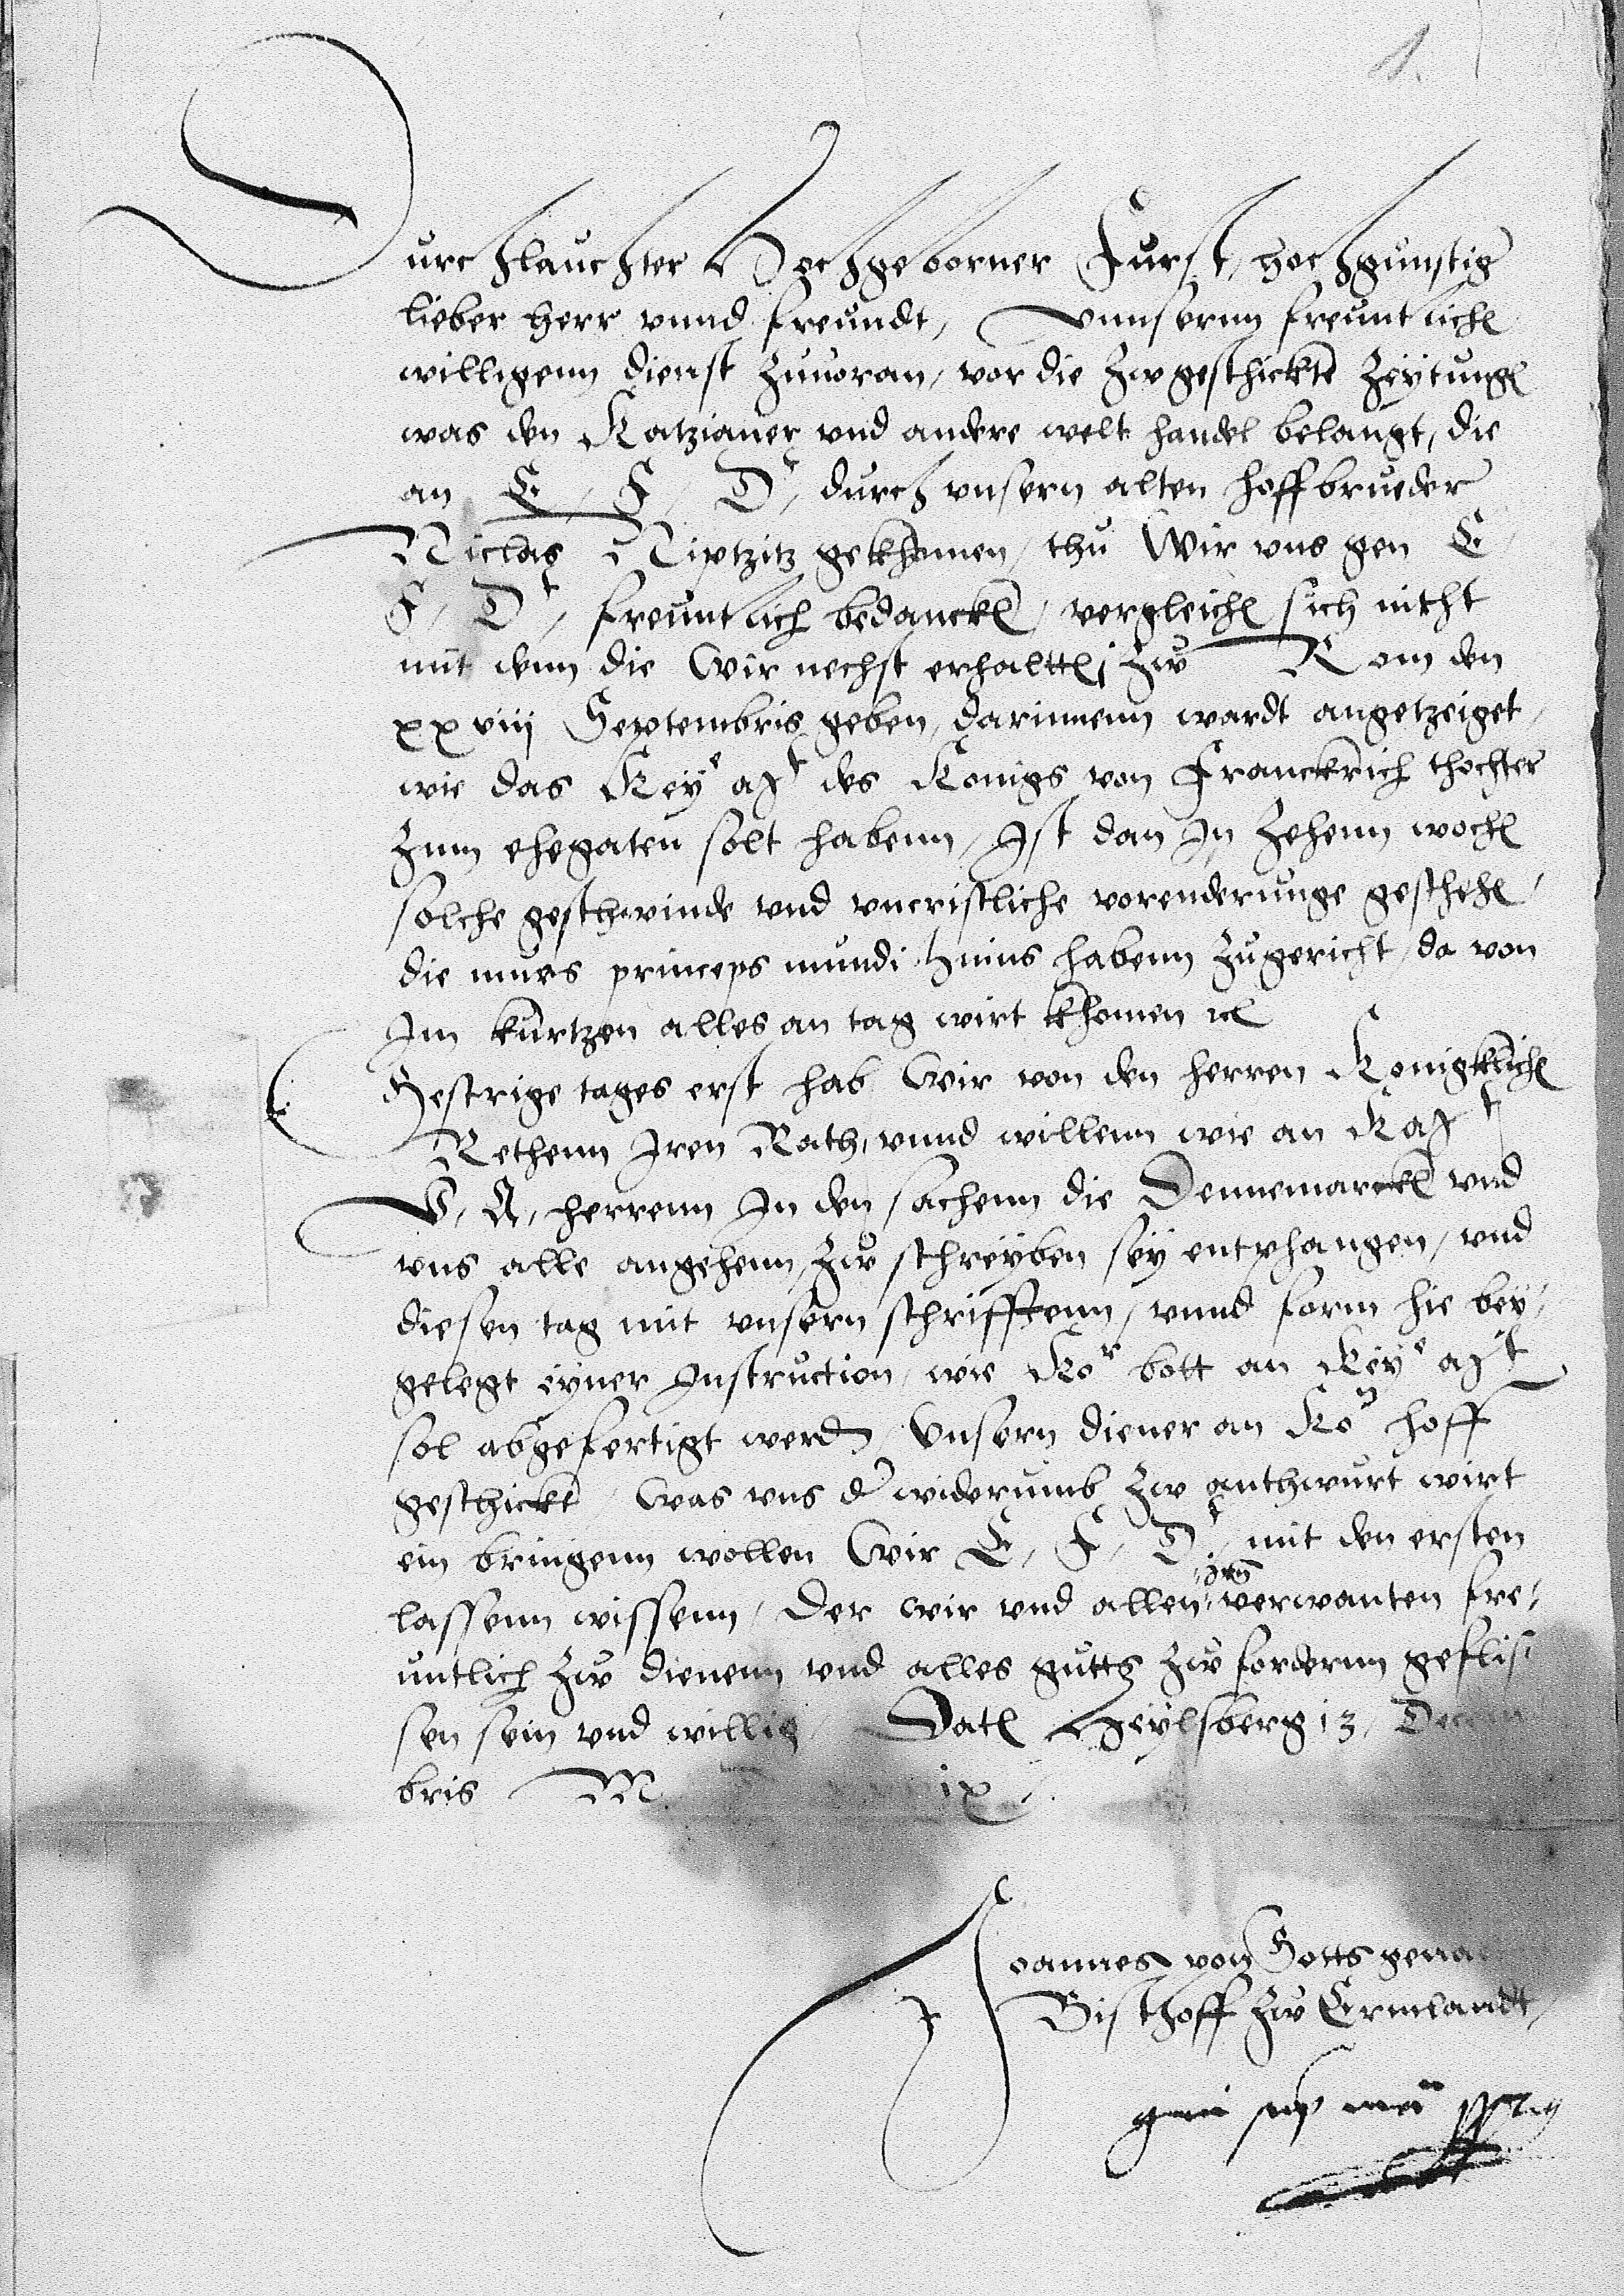 1.
Durchlauchter Hochgeborner Furst, hochgunstig(er)
lieber herr vnnd freundt, Vnnsernn freuntlich(en)
willigenn dienst zuuoran, vor die zwgeschickte zeytung(en)
was den Katzianer vnd andere welt handel belangt, die
an E, F, Dt, durch vnsern alten hoffbrueder
Niclas Niptzitz gekhomen, thu Wir vns gen E,
F, Dt, freuntlich bedanck(en), vergleich(en) sich nicht
mit denn die Wir nechst erhaltt(en), zw Rom den
xxviij Septembris geben, darinnenn wardt angetzeiget,
wie das Keye Mt des Konigs von Franckrich thochter
zum ehegaten solt habenn, Ist dan In zehenn woch(en)
solche geschwinde vnd vncristliche vorenderunge gescheh(en),
die mues princeps mundi huius habenn zugericht, da von
Im kurtzen alles an tag wirt khomen etc
Gestrige tages erst hab Wir von den herren Konigklich(en)
Rethenn Iren Rath, vnnd willenn wie an K Mt
V, A, herrenn In den sachenn die Dennemarck(en) vnd
vns alle angehenn, zw schreyben sey entphangen, vnd
diesen tag mit vnsern schrifftenn, vnnd form hie bey,
gelegt eyner Instruction, wie Kor bott an Keye Mt
sol abgefertigt werd(en), Vnsern diener an Kon hoff
geschickt, Was vns d(er) widerumb zw anthwurt wirt
ein bringenn wollen Wir E, F, Dt, mit den ersten
lassenn wissenn, Der wir vnd allen irn verwanten fre,
untlich zw dienenn vnd alles gutts zw fordernn geflis,
sen sein vnd willig, Dat(um) Heylsberg 13, Decem
bris M ix,
Joannes von Gotts gena
Bischoff zw Ermlandt,